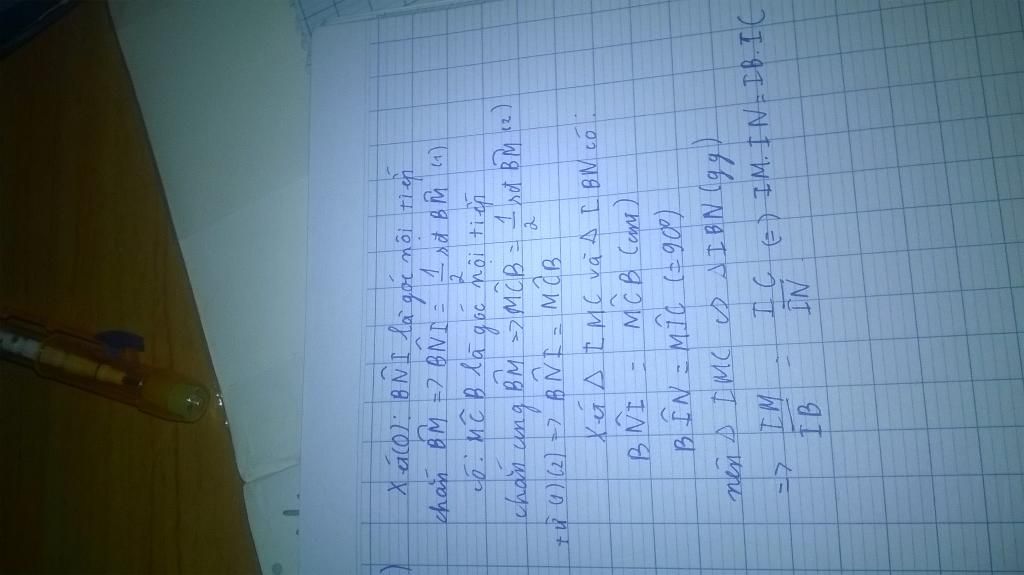 ) Xét (O): BN̂I là góc nội tiếp
chắn BM̂ => BN̂I = 1/2 sđ BM̂ (1)
có: MĈB là góc nội tiếp
chắn cung BM̂ => MĈB = 1/2 sđ BM̂ (2)
từ (1) (2) => BN̂I = MĈB
Xét Δ IMC và Δ IBN có:
BN̂I = MĈB (cmt)
BÎN = MÎC (= 90°)
nên Δ IMC ∽ Δ IBN (gg)
=> IM/IB = IC/IN (=) IM.IN = IB.IC